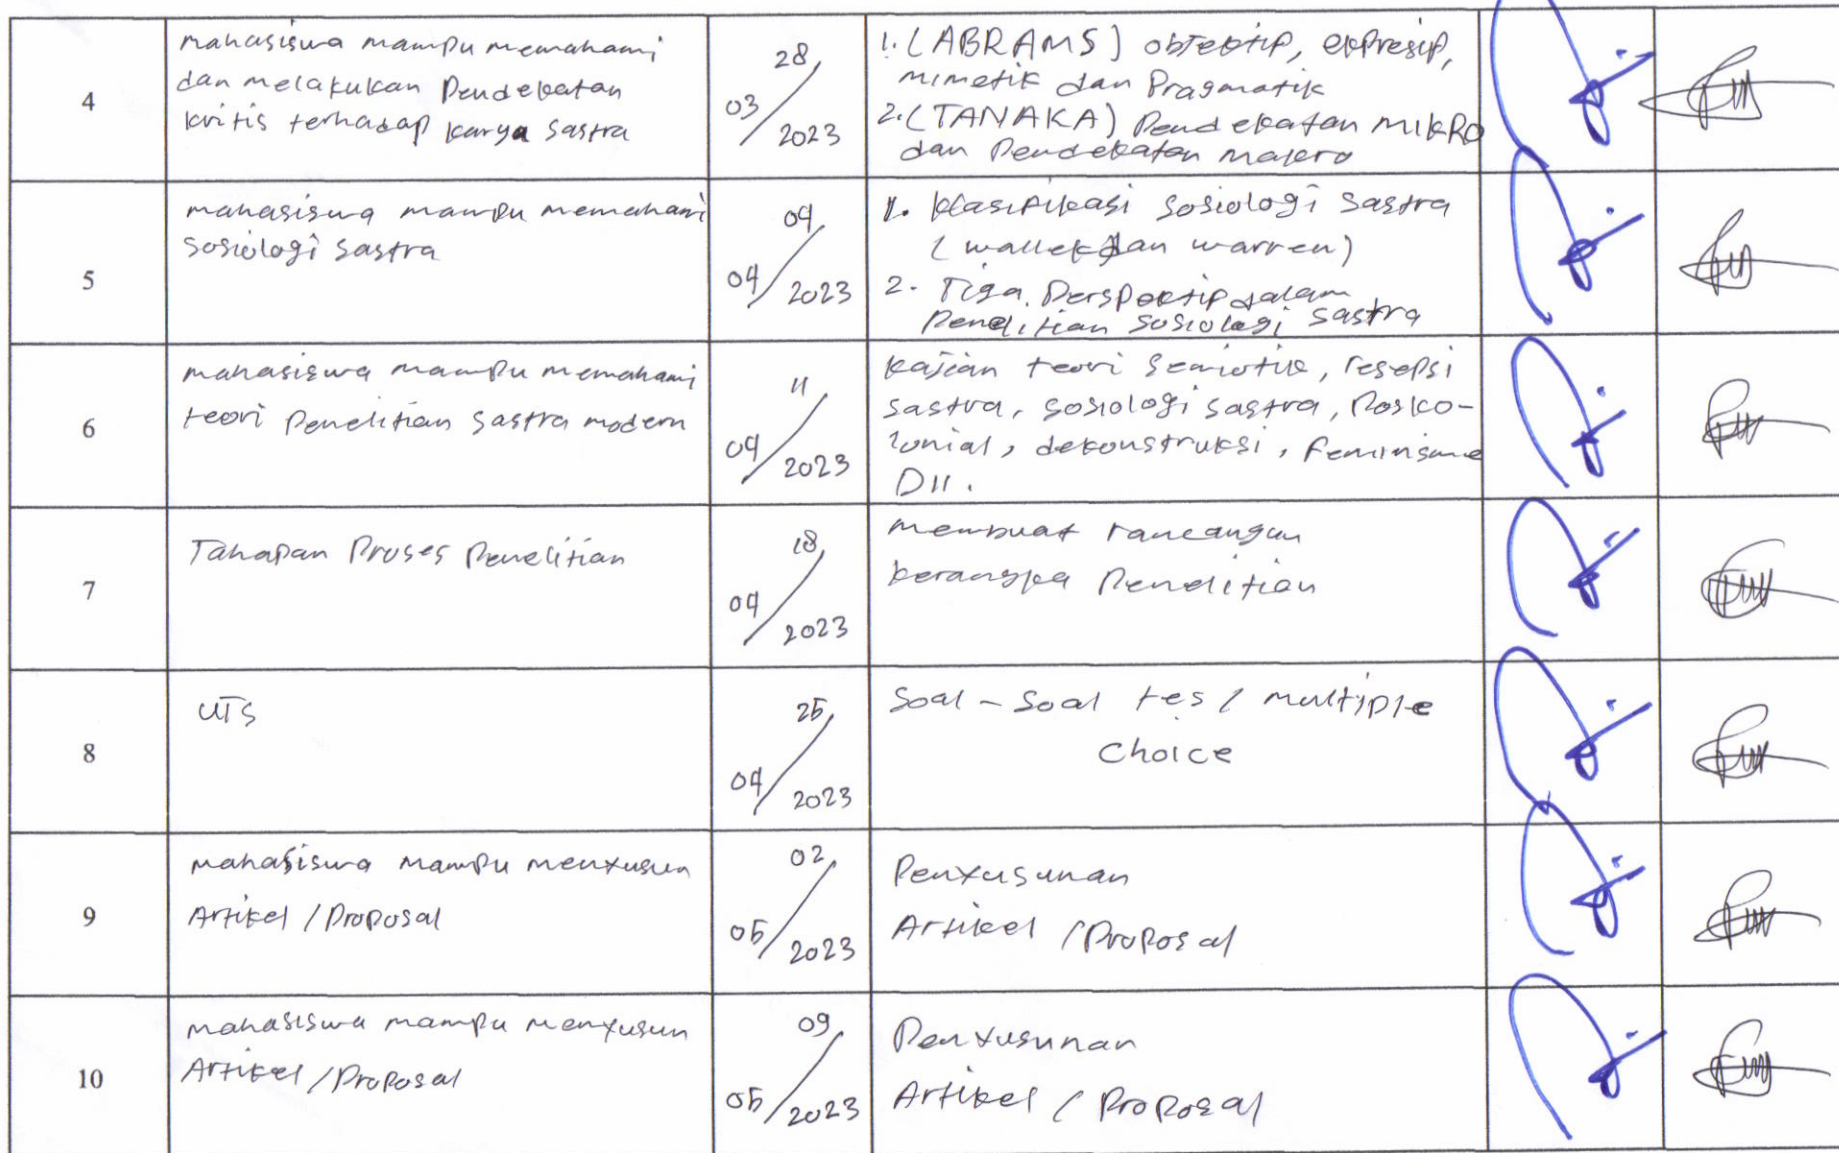 4
mahasiswa mampu memahami
dan melakukan Pendekatan
kritis terhadap karya sastra
28/
03/2023
1. (ABRAMS) objektip, ekpresip,
mimetik dan Pragmatik
2. (TANAKA) Pendekatan MIKRO
dan Pendekatan makro
5
mahasiswa mampu memahami
sosiologi sastra
04/
04/2023
1. klasipikasi sosiologi sastra
(wallek dan warren)
2. Tiga Perspektip dalam
Penelitian sosiologi sastra
6
mahasiswa mampu memahami
teori Penelitian sastra modern
11/
04/2023
kajian teori semiotik, resepsi
sastra, sosiologi sastra, Posko-
lonial, dekonstruksi, feminisme
Dll.
7
Tahapan Proses Penelitian
18/
04/2023
membuat rancangan
kerangka Penelitian
8
UTS
25/
04/2023
Soal - Soal tes / multiple
choice
9
mahasiswa mampu menyusun
Artikel / Proposal
02/
05/2023
Penyusunan
Artikel / Proposal
10
mahasiswa mampu menyusun
Artikel / Proposal
09/
05/2023
Penyusunan
Artikel / Proposal